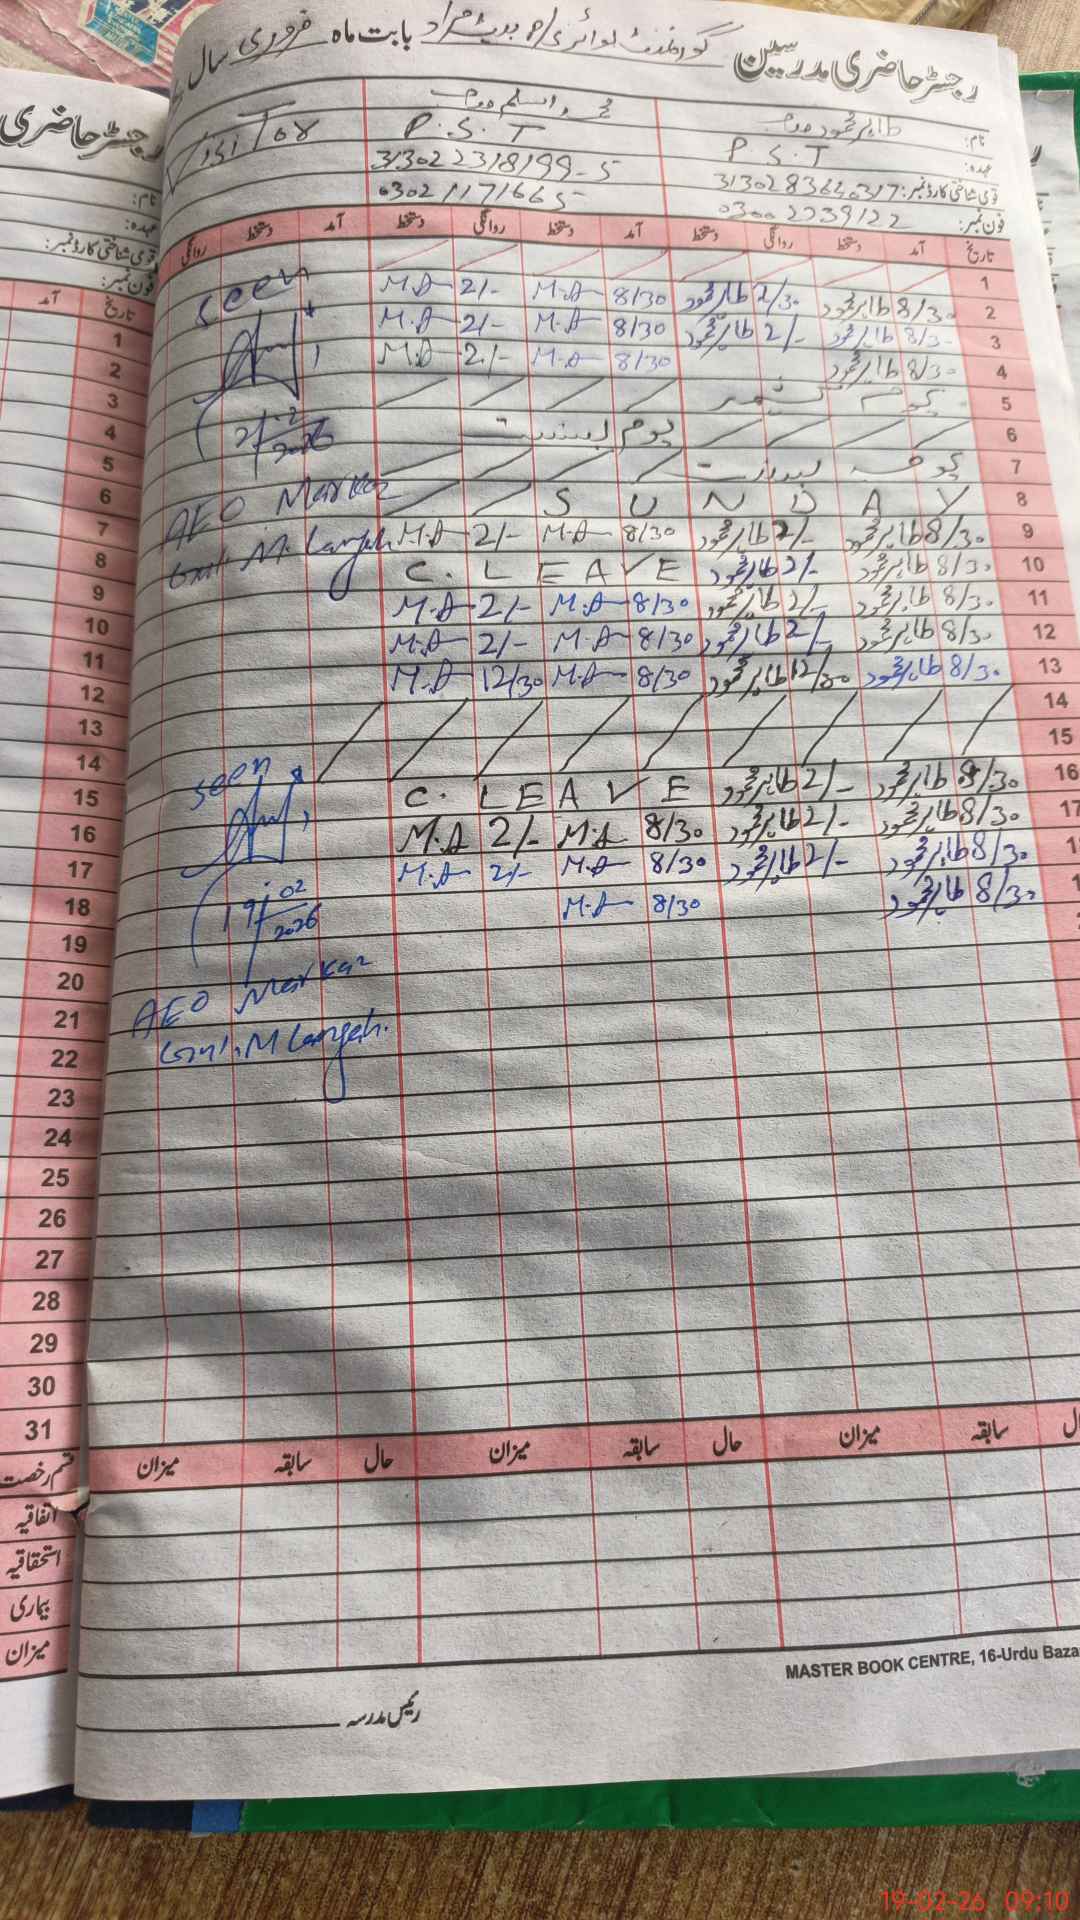 رجسٹر حاضری مدرسین گورنمنٹ بوائز بابت ماہ فروری سال
نام: طاہر محمود محمد اسلم
عہدہ: P.S.T P.S.T 151/08
قومی شناختی کارڈ نمبر: 31302 2318199-5
فون نمبر: 0300 2239122 0302 1171665
تاریخ آمد دستخط روانگی دستخط آمد دستخط روانگی دستخط آمد دستخط روانگی
1
2 8/30 طاہر محمود 2/30 طاہر محمود 8/30 M.A 2/- M.A seen
3 8/30 طاہر محمود 2/- طاہر محمود 8/30 M.A 2/- M.A
4 8/30 طاہر محمود 8/30 M.A 2/- M.A
5 یوم کشمیر
6 یوم بسنت 2026
7 بسنت
8 S U N D A Y AEO Markaz
9 8/30 طاہر محمود 2/- طاہر محمود 8/30 M.A 2/- M.A M. Langah
10 8/30 طاہر محمود 2/- طاہر محمود C. L E A V E
11 8/30 طاہر محمود 2/- طاہر محمود 8/30 M.A 2/- M.A
12 8/30 طاہر محمود 2/- طاہر محمود 8/30 M.A 2/- M.A
13 8/30 طاہر محمود 12/30 طاہر محمود 8/30 M.A 12/30 M.A
14
15
16 8/30 طاہر محمود 2/- طاہر محمود C. L E A V E seen
17 8/30 طاہر محمود 2/- طاہر محمود 8/30 M.A 2/- M.A
8/30 طاہر محمود 2/- طاہر محمود 8/30 M.A 2/- M.A
8/30 طاہر محمود 8/30 M.A 19/02/2026
AEO Markaz
M Langah.
سابقہ میزان حال سابقہ میزان حال سابقہ میزان
MASTER BOOK CENTRE, 16-Urdu Baza
رئیس مدرسہ
رجسٹر حاضری
نام:
عہدہ:
قومی شناختی کارڈ نمبر:
فون نمبر:
تاریخ آمد
1
2
3
4
5
6
7
8
9
10
11
12
13
14
15
16
17
18
19
20
21
22
23
24
25
26
27
28
29
30
31
قسم رخصت
اتفاقیہ
استحقاقیہ
بیماری
میزان
19-02-26 09:10